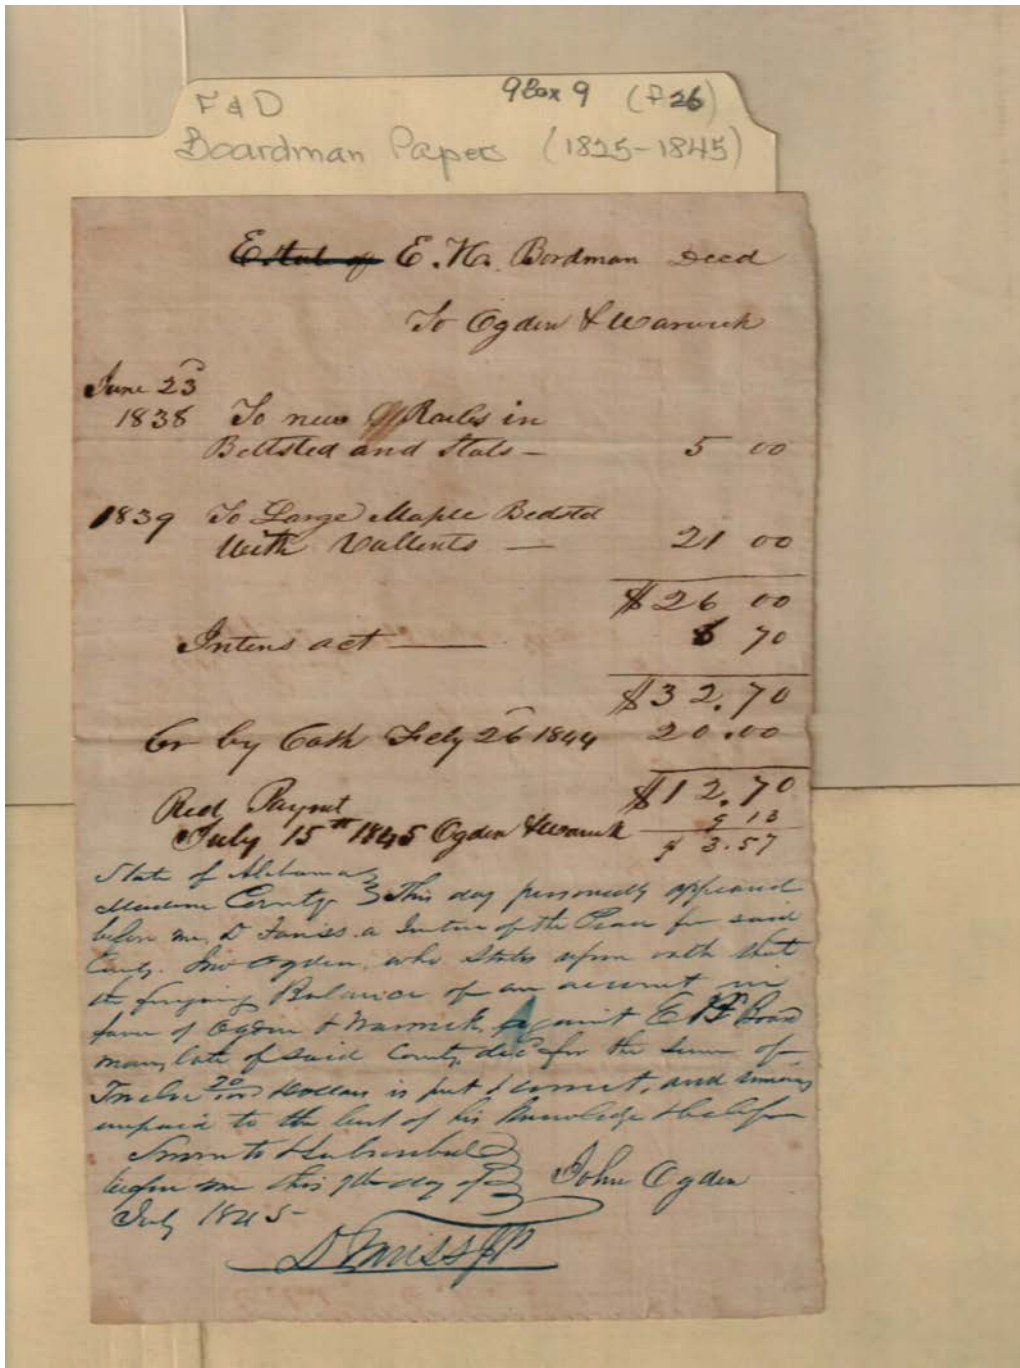 F & D 9Box 9 (F26)
Boardman Papers (1825-1845)
E. H. Bordman Decd
To Ogden & Warwick
June 23
1838 To new Railes in
Bettsted and Slats — 5 00
1839 To Large Maple Bedsted
With Vallents — 21 00
$26 00
Intens act — 6 70
$32.70
Cr by Cash Feby 26 1844 20.00
$12.70
Recd Paymt 9 13
July 15th 1845 Ogden & Warwick $ 3.57
State of Alabama
Madison County This day personally appeared
before me, D a Justice of the Peace for said
County. Jno Ogden, who States upon oath that
the foregoing Balance of an account in
favor of Ogden & Warwick, against E H Board
man, late of said County, decd for the sum of
Twelve 70/100 Dollars is just & correct, and remains
unpaid to the best of his knowledge & belief
Sworn to & Subscribed
before me this 9th day of John Ogden
July 1845-